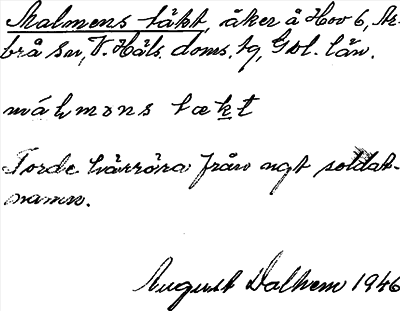 Malmens täkt, åker å Hov 6, As-
brå sn, V. Häls. doms. tg, Gvl. län.
máhmɔns tækt
Torde härröra från ngt soldat-
namn.
August Dalhem 1946